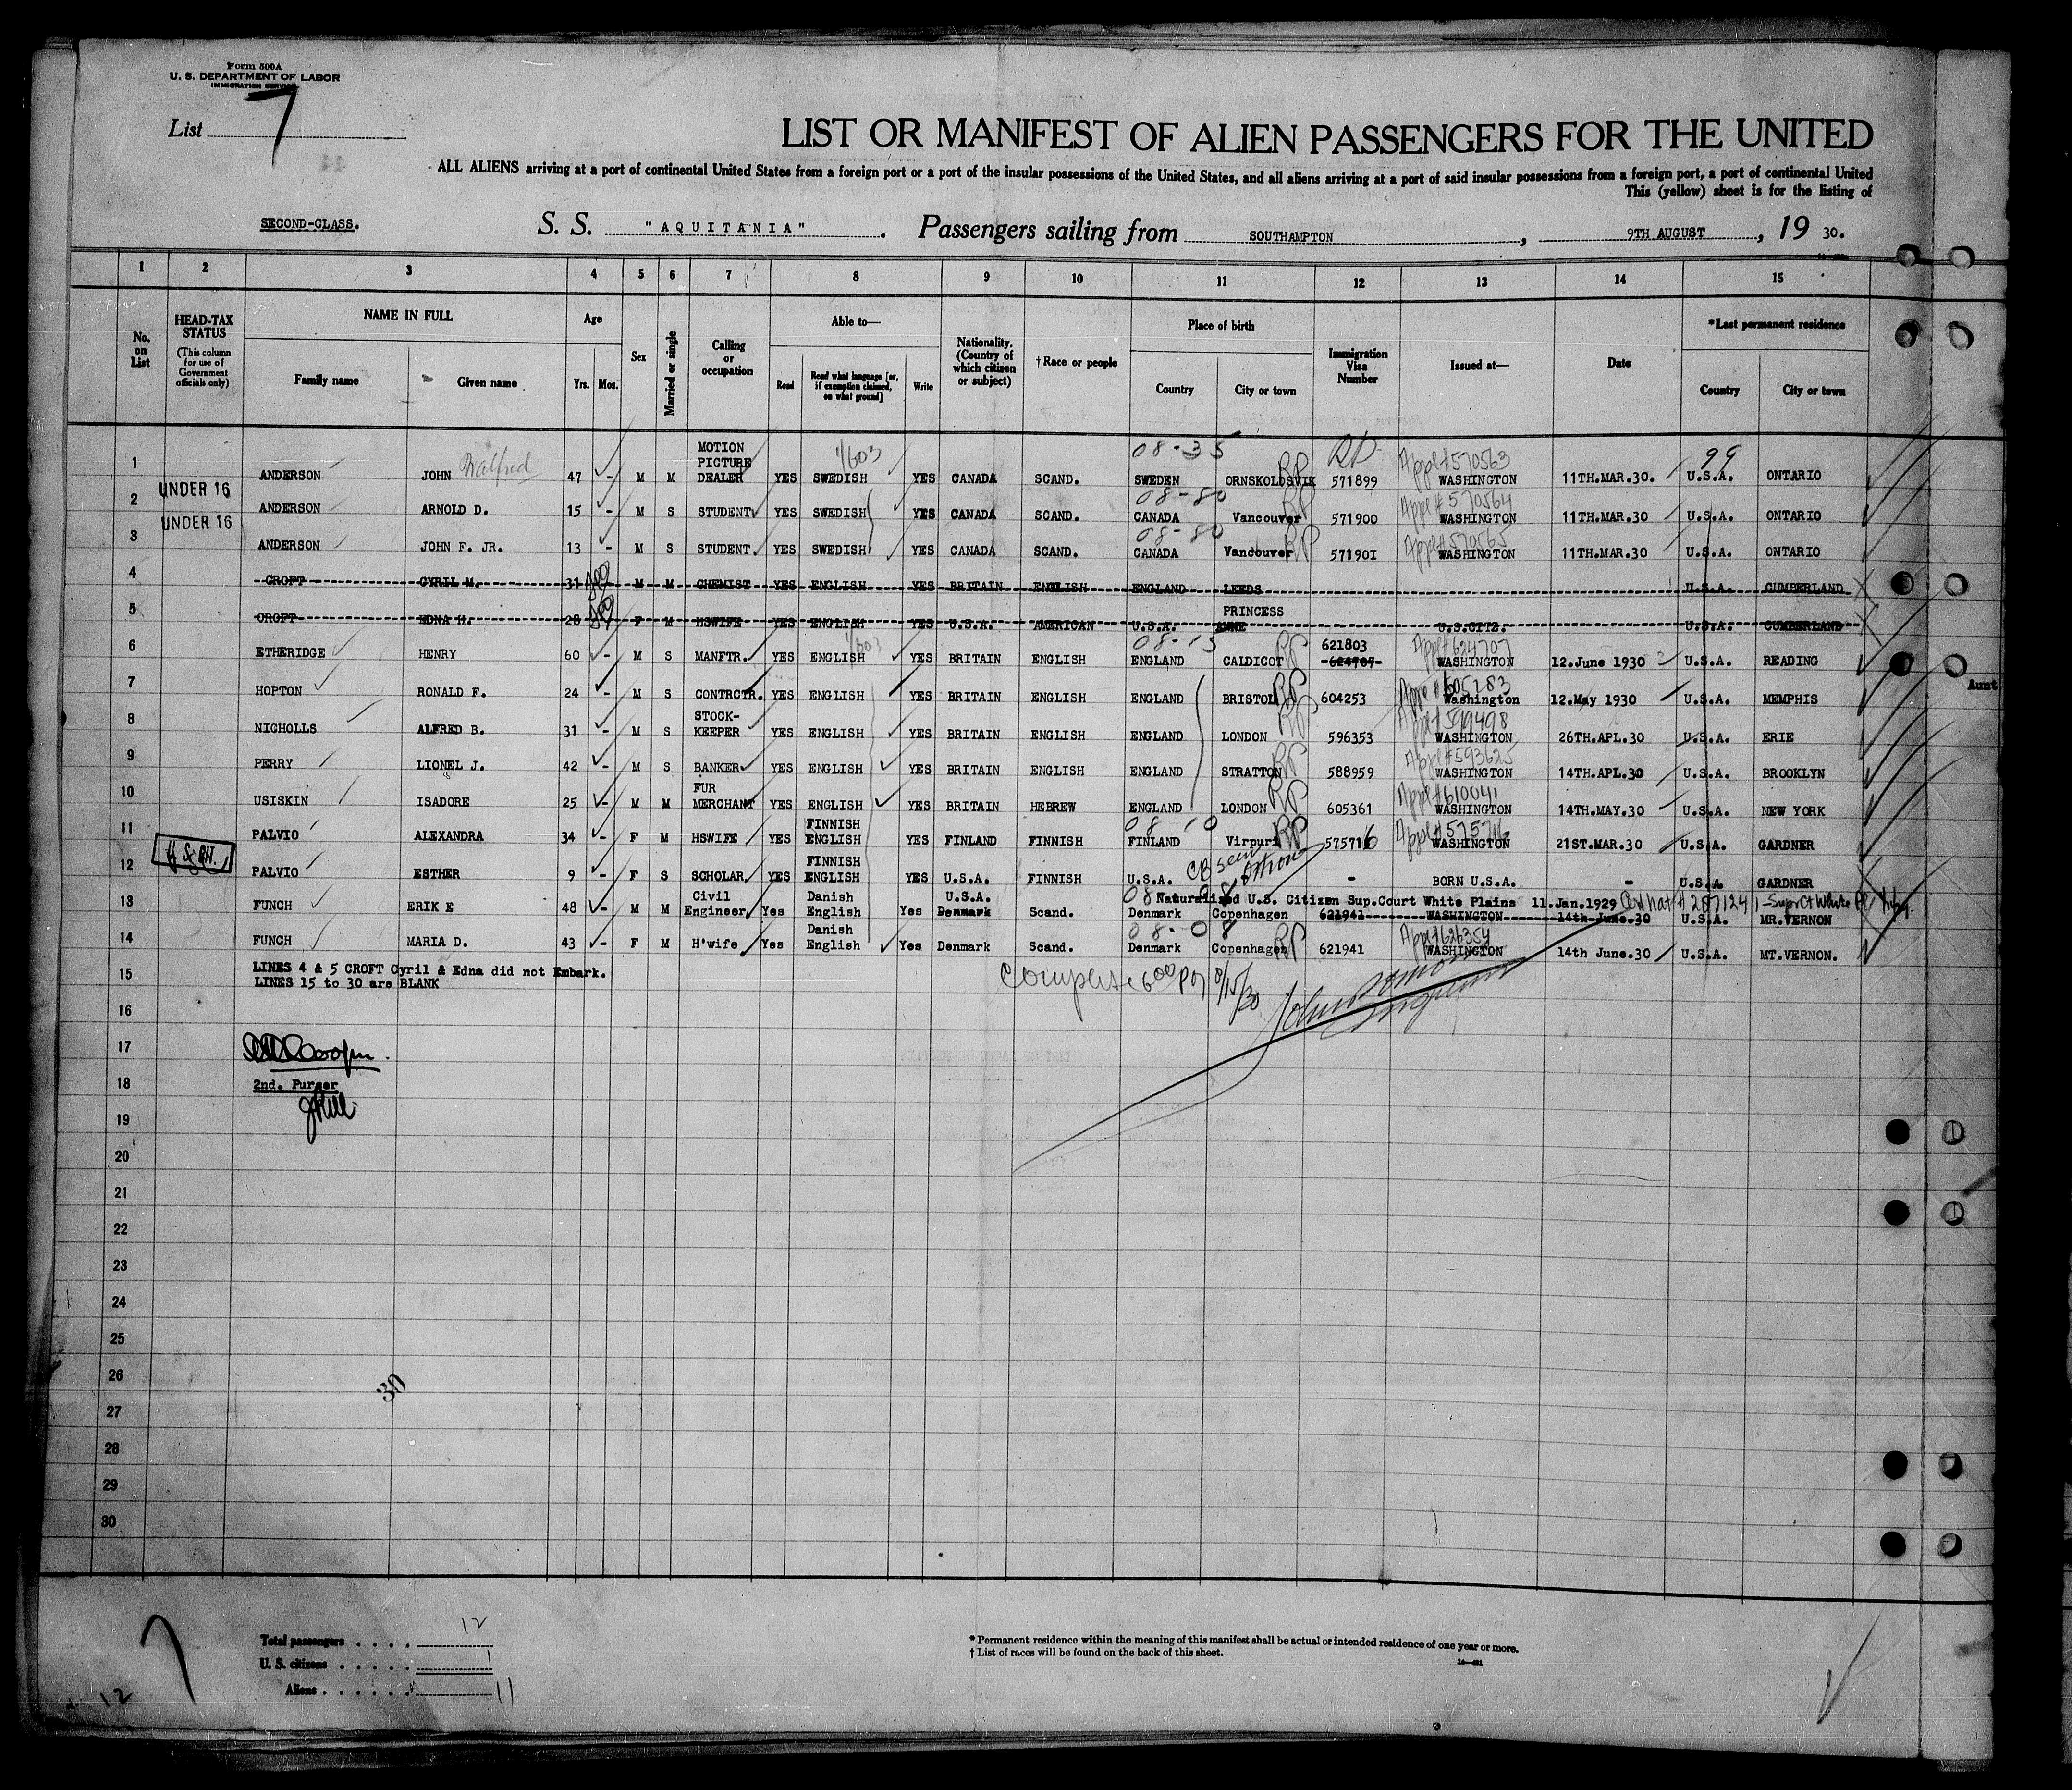 Form 500A
U. S. DEPARTMENT OF LABOR
IMMIGRATION SERVICE
List 7
LIST OR MANIFEST OF ALIEN PASSENGERS FOR THE UNITED
ALL ALIENS arriving at a port of continental United States from a foreign port or a port of the insular possessions of the United States, and all aliens arriving at a port of said insular possessions from a foreign port, a port of continental United
This (yellow) sheet is for the listing of
SECOND-CLASS. S. S. "AQUITANIA". Passengers sailing from SOUTHAMPTON, 9TH AUGUST, 19 30.
1 2 3 4 5 6 7 8 9 10 11 12 13 14 15
No. on List
HEAD-TAX STATUS (This column for use of Government officials only)
NAME IN FULL
Family name Given name
Age
Yrs. Mos.
Sex
Married or single
Calling or occupation
Able to—
Read Read what language [or, if exemption claimed, on what ground] Write
Nationality. (Country of which citizen or subject)
†Race or people
Place of birth
Country City or town
Immigration Visa Number
Issued at—
Date
*Last permanent residence
Country City or town
08-35 RP Appl#570563 99
1 ANDERSON JOHN Walfred 47 - M M MOTION PICTURE DEALER YES SWEDISH YES CANADA SCAND. SWEDEN ORNSKOLDSVIK RP 571899 WASHINGTON 11TH.MAR.30. U.S.A. ONTARIO
08-80 Appl#570564
2 UNDER 16 ANDERSON ARNOLD D. 15 - M S STUDENT YES SWEDISH YES CANADA SCAND. CANADA Vancouver RP 571900 WASHINGTON 11TH.MAR.30 U.S.A. ONTARIO
08-80 Appl#570565
3 UNDER 16 ANDERSON JOHN F. JR. 13 - M S STUDENT. YES SWEDISH YES CANADA SCAND. CANADA Vancouver RP 571901 WASHINGTON 11TH.MAR.30 U.S.A. ONTARIO
4 CROFT CYRIL M. 31 M M CHEMIST YES ENGLISH YES BRITAIN ENGLISH ENGLAND LEEDS U.S.A. CUMBERLAND
5 CROFT EDNA H. 28 F M HSWIFE YES ENGLISH YES U.S.A. AMERICAN U.S.A. PRINCESS ANNE U.S.CITZ. U.S.A. CUMBERLAND
08-15 Appl#624707
6 ETHERIDGE HENRY 60 - M S MANFTR. YES ENGLISH YES BRITAIN ENGLISH ENGLAND CALDICOT RP 621803 -624707- WASHINGTON 12.June 1930 U.S.A. READING
7 HOPTON RONALD F. 24 - M S CONTRCTR. YES ENGLISH YES BRITAIN ENGLISH ENGLAND BRISTOL RP 604253 Appl#605283 Washington 12.May 1930 U.S.A. MEMPHIS
Aunt
8 NICHOLLS ALFRED B. 31 - M S STOCK-KEEPER YES ENGLISH YES BRITAIN ENGLISH ENGLAND LONDON RP 596353 Appl#599498 WASHINGTON 26TH.APL.30 U.S.A. ERIE
9 PERRY LIONEL J. 42 - M S BANKER YES ENGLISH YES BRITAIN ENGLISH ENGLAND STRATTON RP 588959 Appl#593625 WASHINGTON 14TH.APL.30 U.S.A. BROOKLYN
10 USISKIN ISADORE 25 - M M FUR MERCHANT YES ENGLISH YES BRITAIN HEBREW ENGLAND LONDON RP 605361 Appl#610041 WASHINGTON 14TH.MAY.30 U.S.A. NEW YORK
08-10
11 PALVIO ALEXANDRA 34 - F M HSWIFE YES FINNISH ENGLISH YES FINLAND FINNISH FINLAND Virpuri RP 575716 Appl#575716 WASHINGTON 21ST.MAR.30 U.S.A. GARDNER
12 PALVIO ESTHER 9 - F S SCHOLAR YES FINNISH ENGLISH YES U.S.A. FINNISH U.S.A. - BORN U.S.A. - U.S.A GARDNER
Naturalized U.S. Citizen Sup.Court White Plains 11.Jan.1929
13 FUNCH ERIK E 48 - M M Civil Engineer, Yes Danish English Yes U.S.A. Denmark Scand. Denmark Copenhagen 621941 WASHINGTON 14th June.30 U.S.A. MR.VERNON
08-08 Appl#626354
14 FUNCH MARIA D. 43 - F M H'wife Yes Danish English Yes Denmark Scand. Denmark Copenhagen RP 621941 WASHINGTON 14th June.30 U.S.A. MT.VERNON.
15 LINES 4 & 5 CROFT Cyril & Edna did not Embark.
LINES 15 to 30 are BLANK
Complete 8/15/30
16
17
18 2nd. Purser
19
20
21
22
23
24
25
26
30
27
28
29
30
Total passengers . . . . 12
U. S. citizens . . . . . 1
Aliens . . . . . . 11
12
* Permanent residence within the meaning of this manifest shall be actual or intended residence of one year or more.
† List of races will be found on the back of this sheet.